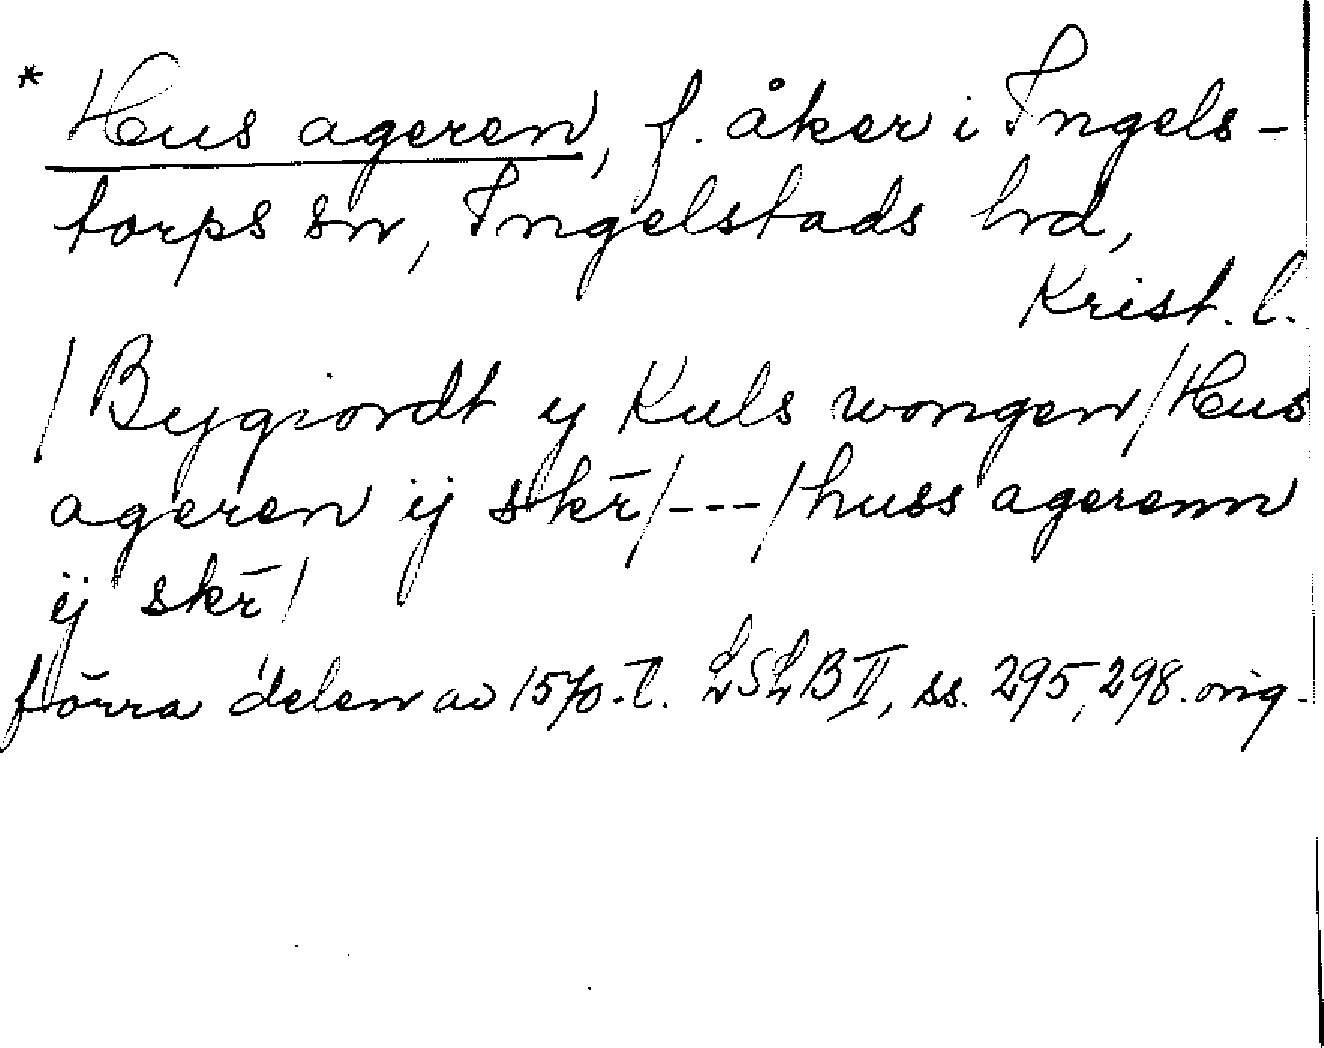 * Hus ageren, f. åker i Ingels-
torps sn, Ingelstads hd,
Krist. l.
/ Bygiordt y Kuls wongen / Hus
ageren ij skr̄ /---/ huss agerenn
ij skr̄ /
förra delen av 1570-t. LSLB II, ss. 295, 298. orig.